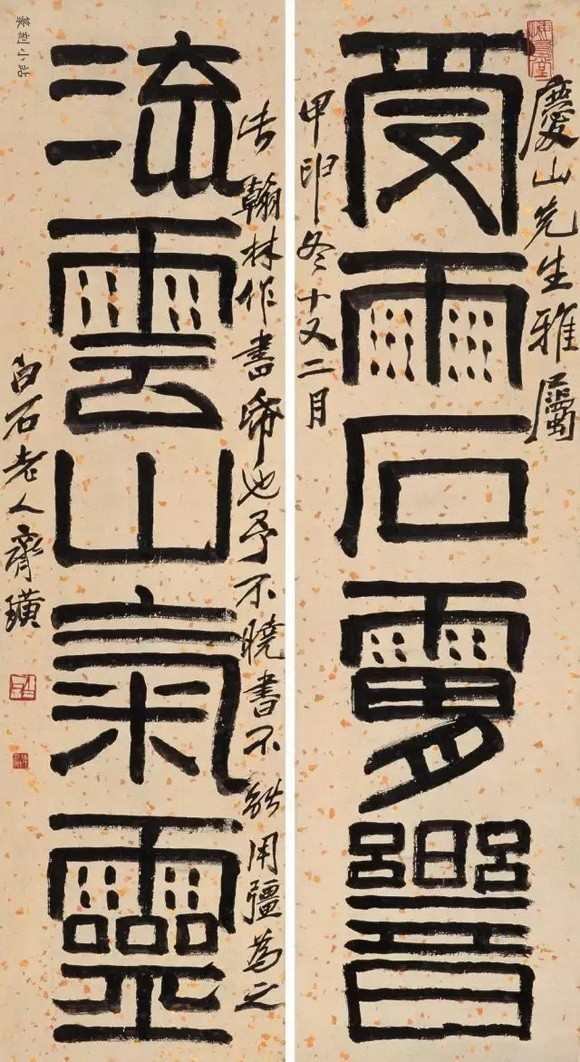 慶山先生雅屬
受雨石
甲申冬十又二月
翰林作書也予不曉書不能用彊為之
流雲山氣靈
白石老人齊璜
篆刻小站